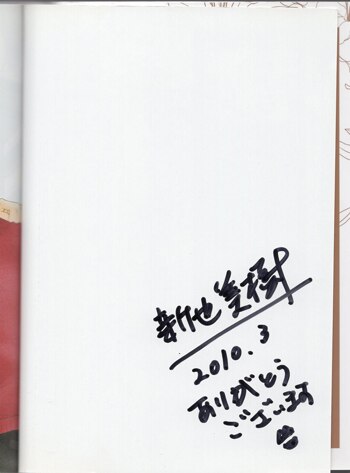 新也美樹
2010.3
ありがとう
ございます